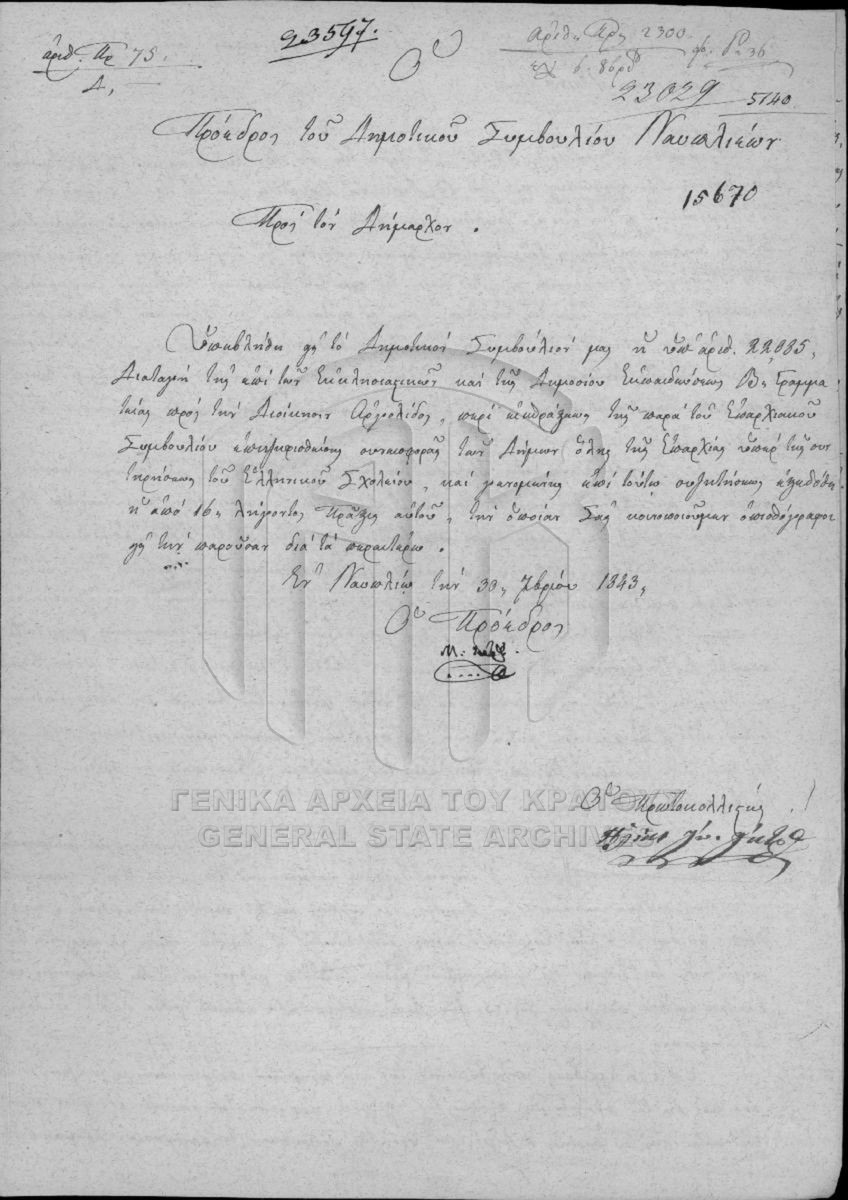 23597.
ἀριθ. Πρ 75.
Δ,
Ἀριθ. Πρ. 2300
23029
5140
Ὁ
Πρόεδρος τοῦ Δημοτικοῦ Συμβουλίου Ναυπλιέων
15670
Πρὸς τὸν Δήμαρχον.
Ὑπεβλήθη εἰς τὸ Δημοτικὸν Συμβούλιόν μας ἡ ὑπ' ἀριθ. 22,085,
Διαταγὴ τῆς ἐπὶ τῶν Ἐκκλησιαστικῶν καὶ τῆς Δημοσίου Ἐκπαιδεύσεως Β. Γραμμα
τείας πρὸς τὴν Διοίκησιν Ἀργολίδος, περὶ εἰσπράξεως τῆς παρὰ τοῦ Ἐπαρχιακοῦ
Συμβουλίου ἐπιψηφισθείσης συνεισφορᾶς τῶν Δήμων ὅλης τῆς Ἐπαρχίας ὑπὲρ τῆς συν
τηρήσεως τοῦ Ἑλληνικοῦ Σχολείου, καὶ γενομένης ἐπὶ τούτῳ συζητήσεως ἐξεδόθη
ἡ ἀπὸ 16 λήγοντος Πρᾶξις αὐτοῦ, τὴν ὁποίαν Σᾶς κοινοποιοῦμεν ὀπισθόγραφον
εἰς τὴν παροῦσαν διὰ τὰ περαιτέρω.
Ἐν Ναυπλίῳ τὴν 30, 7βρίου 1843,
Ὁ Πρόεδρος
Ὁ Πρωτοκολλιστής
ΓΕΝΙΚΑ ΑΡΧΕΙΑ ΤΟΥ ΚΡΑΤΟΥΣ
GENERAL STATE ARCHIVES